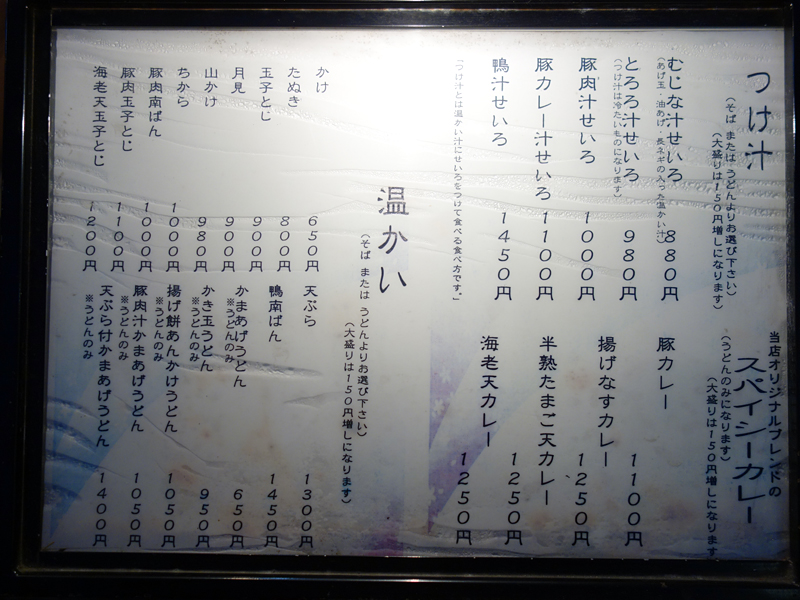 つけ汁
（そば または うどんよりお選び下さい）
（大盛りは１５０円増しになります）
むじな汁せいろ　８８０円
（あげ玉・油あげ・長ネギの入った温かい汁）
とろろ汁せいろ　９８０円
（つけ汁は冷たいものになります）
豚肉汁せいろ　１０００円
豚カレー汁せいろ　１１００円
鴨汁せいろ　１４５０円
「つけ汁とは温かい汁にせいろをつけて食べる食べ方です。」
当店オリジナルブレンドの
スパイシーカレー
（うどんのみになります）
（大盛りは１５０円増しになります）
豚カレー　１１００円
揚げなすカレー　１２５０円
半熟たまご天カレー　１２５０円
海老天カレー　１２５０円
温かい
（そば または うどんよりお選び下さい）
（大盛りは１５０円増しになります）
かけ　６５０円
たぬき　８００円
玉子とじ　９００円
月見　９００円
山かけ　９８０円
ちから　１０００円
豚肉南ばん　１０００円
豚肉玉子とじ　１１００円
海老天玉子とじ　１２００円
天ぷら　１３００円
鴨南ばん　１４５０円
かまあげうどん　６５０円
※うどんのみ
かき玉うどん　９５０円
※うどんのみ
揚げ餅あんかけうどん　１０５０円
※うどんのみ
豚肉汁かまあげうどん　１０５０円
※うどんのみ
天ぷら付かまあげうどん　１４００円
※うどんのみ